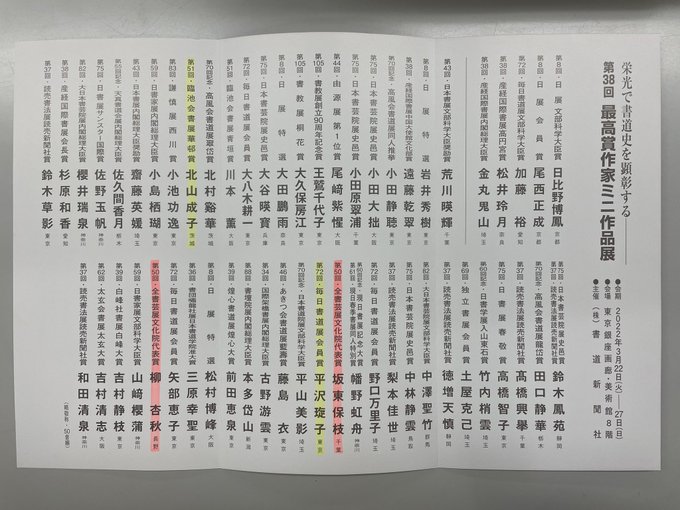 栄光で書道史を顕彰する
第38回 最高賞作家ミニ作品展
●会期 2022年3月22日(火)―27日(日)
●会場 東京銀座画廊・美術館8階
●主催 (株)書道新聞社
第8回・日展文部科学大臣賞 日比野博鳳 京都
第8回・日展会員賞 尾西正成 京都
第72回・毎日書道展文部科学大臣賞 加藤裕 愛知
第38回・産経国際書展高円宮賞 松井玲月 奈良
第38回・産経国際書展内閣総理大臣賞 金丸鬼山 埼玉
第43回・日本書展文部科学大臣奨励賞 荒川暎輝 千葉
第8回・日展特選 岩井秀樹 東京
産経国際書展中国大使館文化部賞 遠藤乾翠
第70回記念・高風会書道展同人推挙 小田静聴
第75回・日本書芸院展史邑賞 小田大拙 大阪
第75回・日本書芸院展史邑賞 小田原翠浦 千葉
第44回・由源展第1位賞 尾﨑紫惺 大阪
第105回・書教展創立90周年記念賞 王鷲千代子
第105回・書教展桐花賞 大久保房江 東京
第8回・日展特選 大田鵬雨 奈良
第75回・日本書芸院展史邑賞 大谷暎寶 兵庫
第72回・毎日書道展会員賞 大八木耕一 東京
第51回・臨池会書展青垣賞 川本薫 大阪
第70回記念・高風会書道展翠岱賞 北村谿華 茨城
第51回・臨池会書展華邨賞 北山成子 茨城
第83回・謙慎展西川賞 小池功逸 東京
第59回・日書家展内閣総理大臣賞 小島栖瑚 東京
第43回・日本書展内閣総理大臣奨励賞 齋藤英媛 埼玉
第55回記念・天真書道会展内閣総理大臣賞 佐久間香月 栃木
第75回・日書展サンスター国際賞 佐野玉帆 神奈川
第82回・大日本書芸院展内閣総理大臣賞 櫻井瑞泉 神奈川
第38回・産経国際書展会長賞 杉原和香 愛知
第37回・読売書法展読売新聞社賞 鈴木草影 東京
第75回・日本書芸院展史邑賞
第37回・読売書法展読売新聞社賞 鈴木鳳苑 静岡
第70回記念・高風会書道展龍岱賞 田口静華 栃木
第37回・読売書法展読売新聞社賞 髙橋興舉 千葉
第75回・日書展春敬賞 高橋智子 東京
第60回記念・日書学展入山東石賞 竹内梢雲 埼玉
第69回・独立書展会員賞 土屋克己 埼玉
第37回・読売書法展読売新聞社賞 徳増天慎 静岡
第82回・大日本書芸院展文部科学大臣賞 中澤聖竹 群馬
第75回・日本書芸院展史邑賞 中林静雲
第37回・読売書法展読売新聞社賞 梨本佳世 埼玉
第72回・毎日書道展会員賞 野口万里子 埼玉
第60回記念・現日書展記念大賞
第61回・現日春季書展同人特別賞 幡野虹舟 神奈川
第50回・全書芸展文化院代表賞 坂東保枝 千葉
第72回・毎日書道展会員賞 平沢琁子 東京
記念・日本書道院展文部科学大臣賞 平山美影 埼玉
第46回・あきつ会書道展藍壽賞 藤島衣 東京
第34回・国際架橋書展内閣総理大臣賞 古野游雲 東京
第88回・書壇院展内閣総理大臣賞 本多岱山 新潟
第39回・煌心書道展煌心大賞 前田恵泉
第8回・日展特選 松村博峰 大阪
三原幸聖 東京
第72回・毎日書道展会員賞 矢部恵子 東京
第50回・全書芸展文化院代表賞 柳杏秋 長野
第59回・日書家展文部科学大臣賞 山﨑櫻蒲 神奈川
第39回・白峰社書展白峰大賞 吉村静枝 東京
第62回・太玄会書展太玄大賞 吉村清志 大阪
第37回・読売書法展読売新聞社賞 和田清泉 神奈川
(敬称略・50音順)